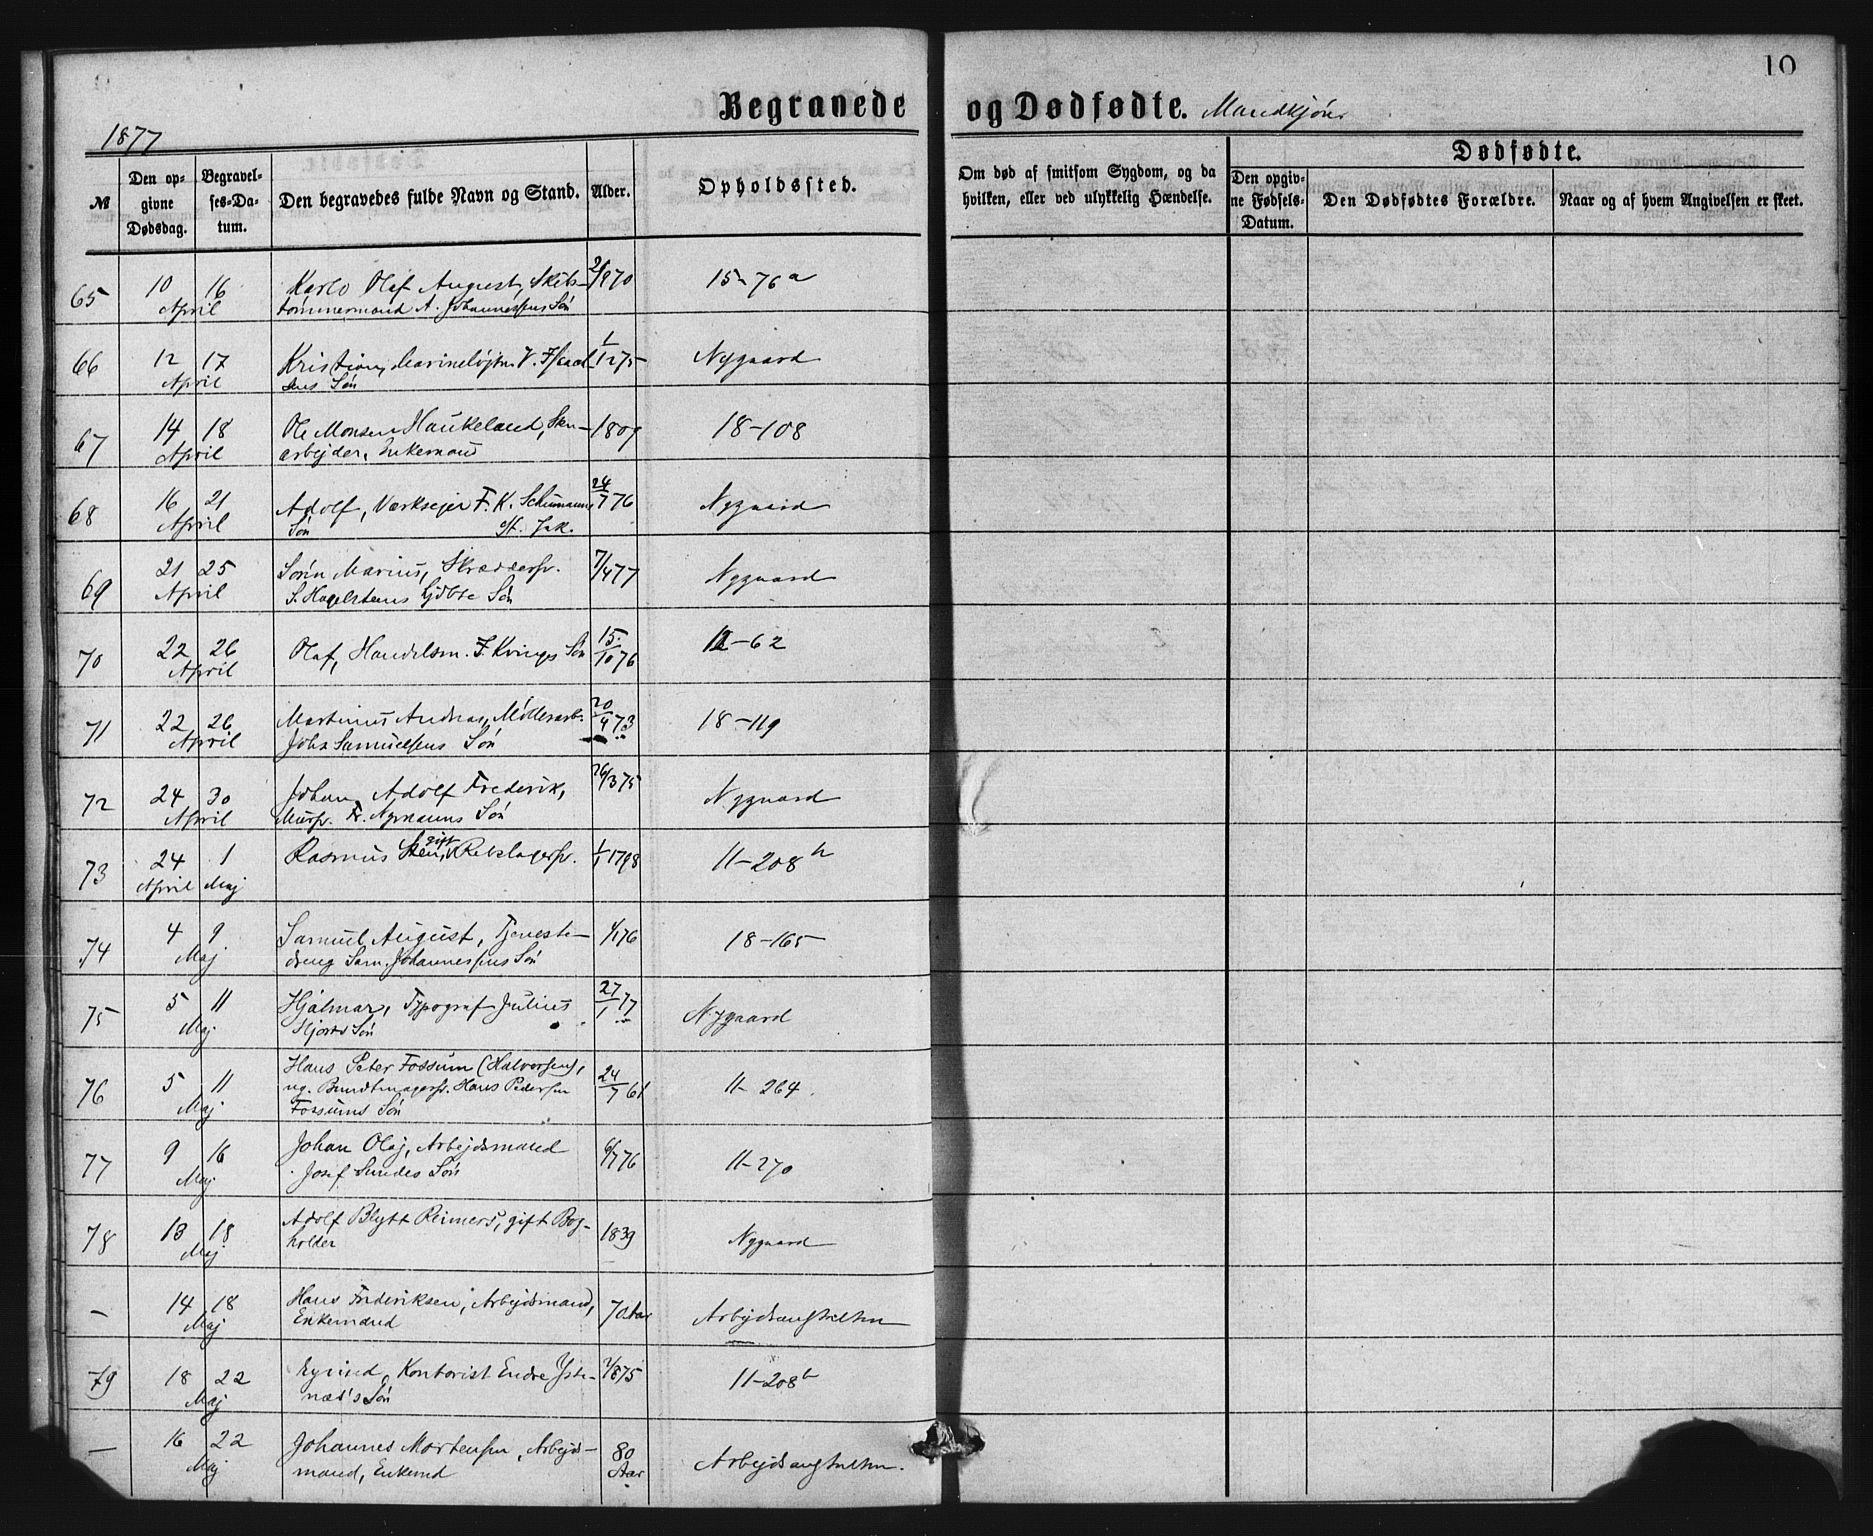 10
Begravede og Dødfødte. Mandkjøn
1877
Dødfødte.
№
Den opgivne Dødsdag.
Begravelses-Datum.
Den begravedes fulde Navn og Stand.
Alder.
Opholdssted.
Om død af smitsom Sygdom, og da
hvilken, eller ved ulykkelig Hændelse.
Den opgivne Fødsels-Datum.
Den Dødfødtes Forældre.
Naar og af hvem Angivelsen er skeet.
65 10 16 April Karlo Olaf August, Skibs-
tømmermand A. Johannessens Søn 15-76a
66 12 17 April Kristian, Marineløjtn. V.
sens Søn 1/12 75 Nygaard
67 14 18 April Ole Monsen Haukeland,
arbejder, Enkemand 1809 18-108
68 16 21 April Adolf, Værksejer F. K. Schumanns
Søn St. Jak. 24/7 76 Nygaard
69 21 25 April Sørin Marius, Skræddersv.
S. Hagelsteens Søn 7/4 77 Nygaard
70 22 26 April Olaf, Handelsm. F. Kvinges Søn 15/10 76 12-62
71 22 26 April Martinus Andreas, Møllerarb.
Johs Samuelsens Søn 20/4 73 18-119
72 24 30 April Johan Adolf Frederik,
Mursv. Fr. Nymanns Søn 26/3 75 Nygaard
73 24 April 1 Maj Rasmus Steen, gift Rebslagersv. 1/1 1798 11-208b
74 4 9 Maj Samuel August, Tjeneste-
dreng Sam. Johannessens Søn 1/1 76 18-165
75 5 11 Maj Hjalmar, Typograf Julius
Hjorts Søn 27/1 77 Nygaard
76 5 11 Maj Hans Peter Fossum (Halvorsen),
ug. Bundtmagersv. Hans Pedersen
Fossums Søn 24/7 61 11-264
77 9 16 Maj Johan Olaj, Arbejdsmand
Josef Sundes Søn 6/7 76 11-270
78 13 18 Maj Adolf Blytt Reimers, gift Bog-
holder 1839 Nygaard
— 14 18 Maj Hans Frederiksen, Arbejdsmand,
Enkemand 70 Aar Arbejdsanstalten
79 18 22 Maj Eyvind, Kontorist Endre Yste-
næs's Søn 1/8 75 11-208b
— 16 22 Maj Johannes Mortensen, Arbejds-
mand, Enkemd 80 Aar Arbejdsanstalten.